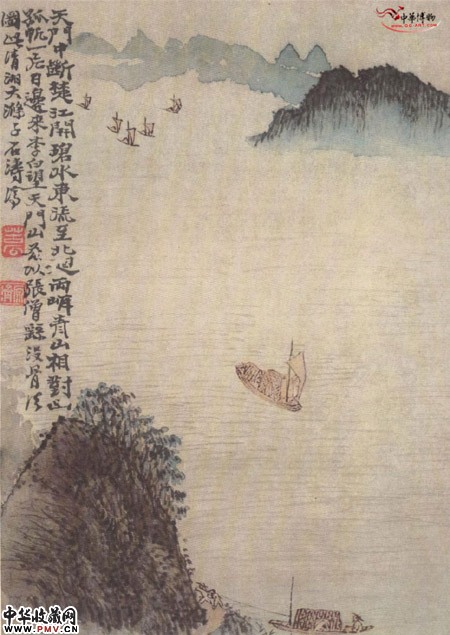 中華博物
www.gg-art.com
天門中斷楚江開碧水東流至北迴兩岸青山相對出
孤帆一片日邊來李白望天門山茲以張僧繇沒骨法
圖此清湘大滌子石濤寫
中华收藏网
WWW.PMV.CN